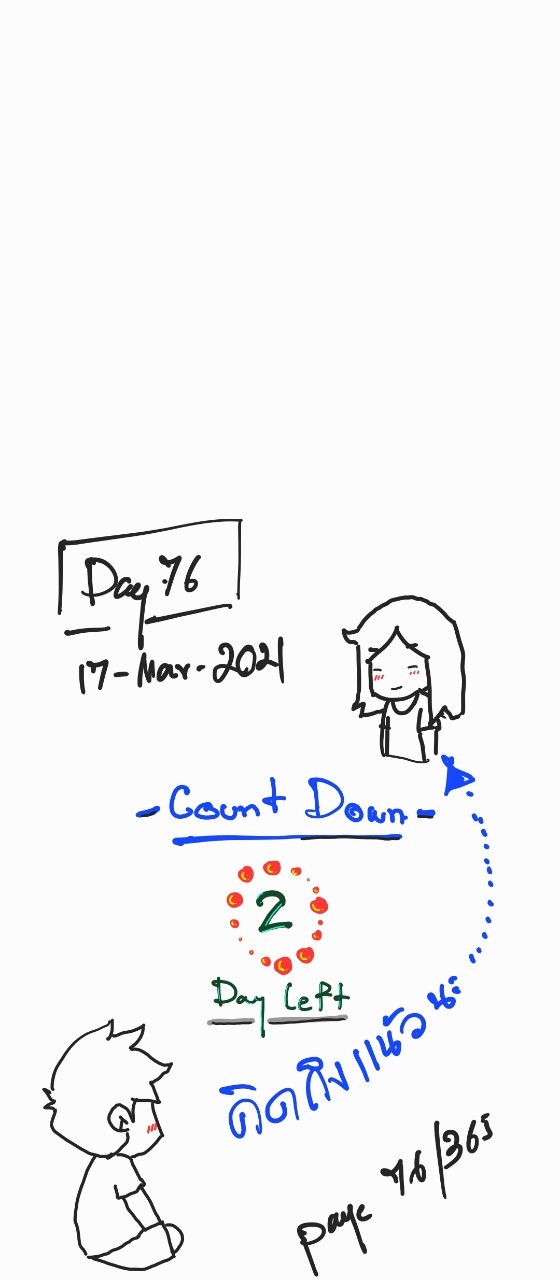 Day 76
17-Mar-2021
- Count Down -
2
Day Left
คิดถึงแล้วนะ
page 76/365